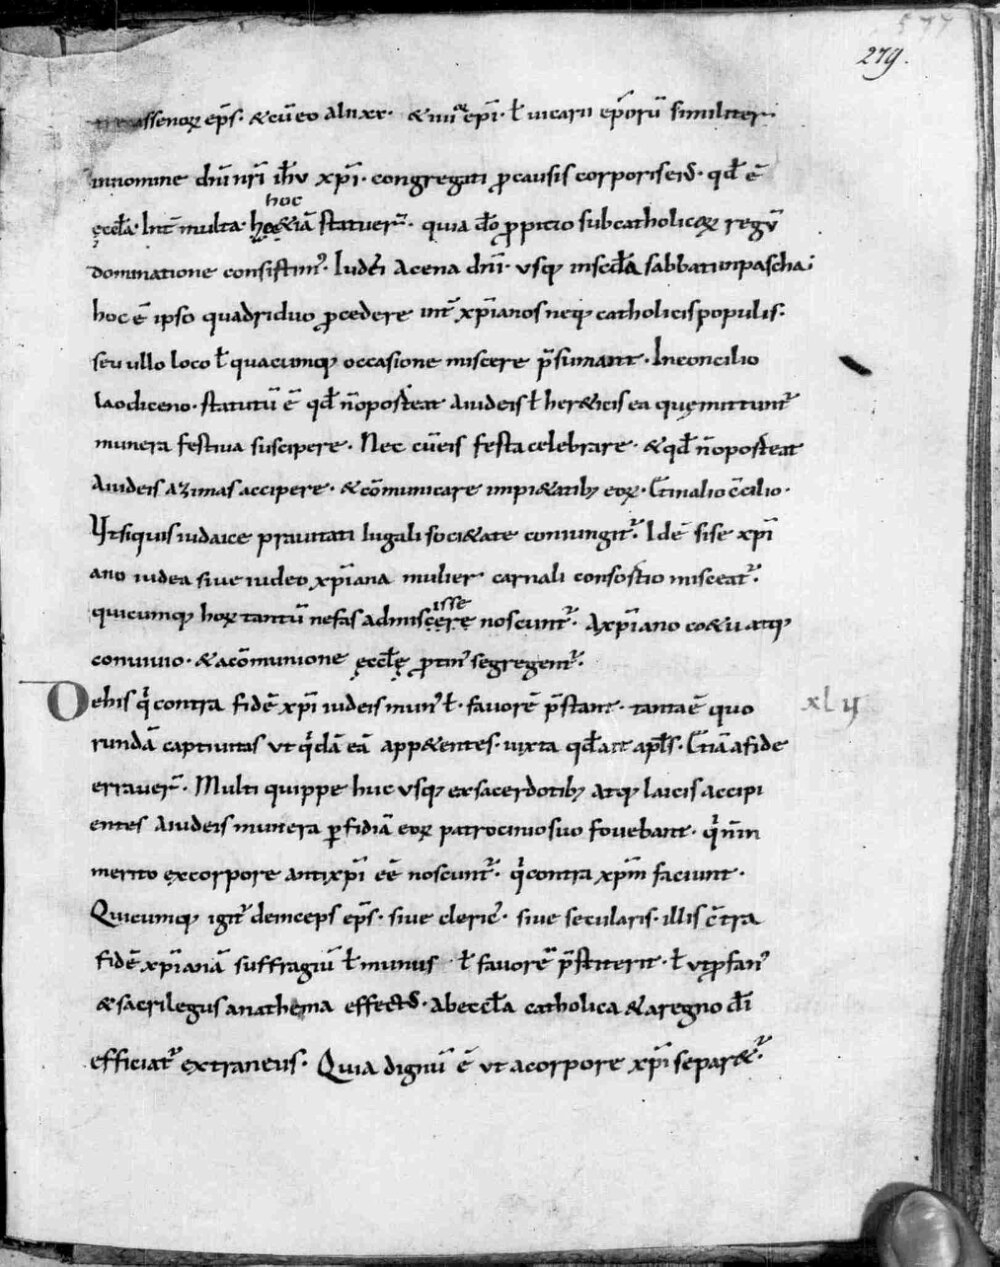 577
279.
assenoꝝ ep̄s. & cū eo alii xx. & iiiiᵒʳ ep̄i. ł uicarii ep̄orū similiter.
in nomine dn̄i nr̄i ih̄u xp̄i. congregati ꝓ causis corporis eiꝰ. qđ ē
hoc
ęccła. Int̄ multa. hoc &iā statuer̄. quia dō ꝓpitio sub catholicoꝝ regū
dominatione consistim᾽. Iudęi a cena dn̄i. usq; in scđa sabbati in pascha.
hoc ē ipso quadriduo ꝓcedere int̄ xp̄ianos neq; catholicis populis.
seu ullo loco ł quacumq; occasione miscere p̄sumant. In concilio
laodiceno. statutū ē qđ n̄ oporteat a iudeis ł her&icis ea quę mittunt᾽
munera festiua suscipere. Nec cū eis festa celebrare. & qđ n̄ oporteat
a iudeis azimas accipere. & cōmunicare impi&atib; eoꝝ.
Ut si quis iudaice prauitati iugali soci&ate coniungit᾽. Idē si se xp̄i
ano iudea siue iudeo xp̄iana mulier carnali consortio misceat᾽.
isse
quicumq; hoꝝ tantū nefas admiscere noscunt᾽. A xp̄iano co&u atq;
conuiuio. & a cōmunione ęccłę ꝓtin᾽ segregent᾽.
De his qͥ contra fidē xp̄i iudeis mun᾽ ł. fauorē p̄stant. tanta ē quo xlv
rundā captiuitas ut qͥdā eā app&entes. iuxta qđ ait apłs. &iā a fide
errauer̄. Multi quippe huc usq; ex sacerdotib; atq; laicis accipi
entes a iudeis munera ꝑfidiā eoꝝ patrocinio suo fouebant. qͥ n̄ in
merito ex corpore antixp̄i ēē noscunt᾽. qͥ contra xp̄m faciunt.
Quicumq; igit᾽ deinceps ep̄s. siue cleric᾽. siue secularis. illis c̄tra
fidē xp̄ianā suffragiū ł munus ł fauorē p̄stiterit. ł ut ꝓfan᾽
& sacrilegus anathema effectꝰ. ab eccła catholica & a regno dī
efficiat᾽ extraneus. Quia dignū ē ut a corpore xp̄i separ&᾽.